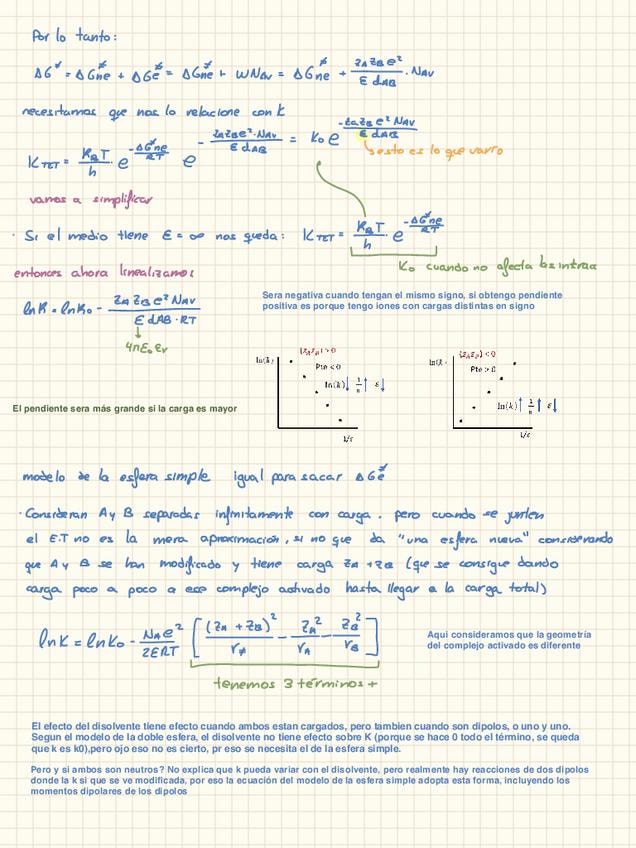 Por lo tanto:
ΔG≠ = ΔGne≠ + ΔGe≠ = ΔGne≠ + WNAV = ΔGne≠ + zAzBe²/(ε dAB) · NAV
necesitamos que nos lo relacione con k
KTET = KBT/h · e^(-ΔG≠ne/RT) e^(-zAzBe²·NAV/(ε dAB)) = K₀ e^(-zAzBe² NAV/(ε dAB))
esto es lo que varío
vamos a simplificar
· Si el medio tiene ε = ∞ nos queda: KTET = KBT/h · e^(-ΔG≠ne/RT)
K₀ cuando no afecta
entonces ahora linealizamos
lnK = lnK₀ - zAzBe² NAV/(ε dAB·RT)
4πε₀εr
Sera negativa cuando tengan el mismo signo, si obtengo pendiente
positiva es porque tengo iones con cargas distintas en signo
(zAzB) > 0
ln(k)
Pte < 0
ln(k)↓ 1/ε↑ ε↓
1/ε
(zAzB) < 0
ln(k)
Pte > 0
ln(k)↑ 1/ε↑ ε↓
1/ε
El pendiente sera más grande si la carga es mayor
modelo de la esfera simple igual para sacar ΔGe≠
· Consideran A y B separadas infinitamente con carga. pero cuando se junten
el E.T no es la mera aproximación, si no que da "una esfera nueva" considerando
que A y B se han modificado y tiene carga zA + zB (que se consigue dando
carga poco a poco a ese complejo activado hasta llegar a la carga total)
lnK = lnK₀ - NAe²/2εRT [(zA + zB)²/r≠ - zA²/rA - zB²/rB]
tenemos 3 términos +
Aqui consideramos que la geometría
del complejo activado es diferente
El efecto del disolvente tiene efecto cuando ambos estan cargados, pero tambien cuando son dipolos, o uno y uno.
Segun el modelo de la doble esfera, el disolvente no tiene efecto sobre K (porque se hace 0 todo el término, se queda
que k es k0),pero ojo eso no es cierto, pr eso se necesita el de la esfera simple.
Pero y si ambos son neutros? No explica que k pueda variar con el disolvente, pero realmente hay reacciones de dos dipolos
donde la k si que se ve modificada, por eso la ecuación del modelo de la esfera simple adopta esta forma, incluyendo los
momentos dipolares de los dipolos